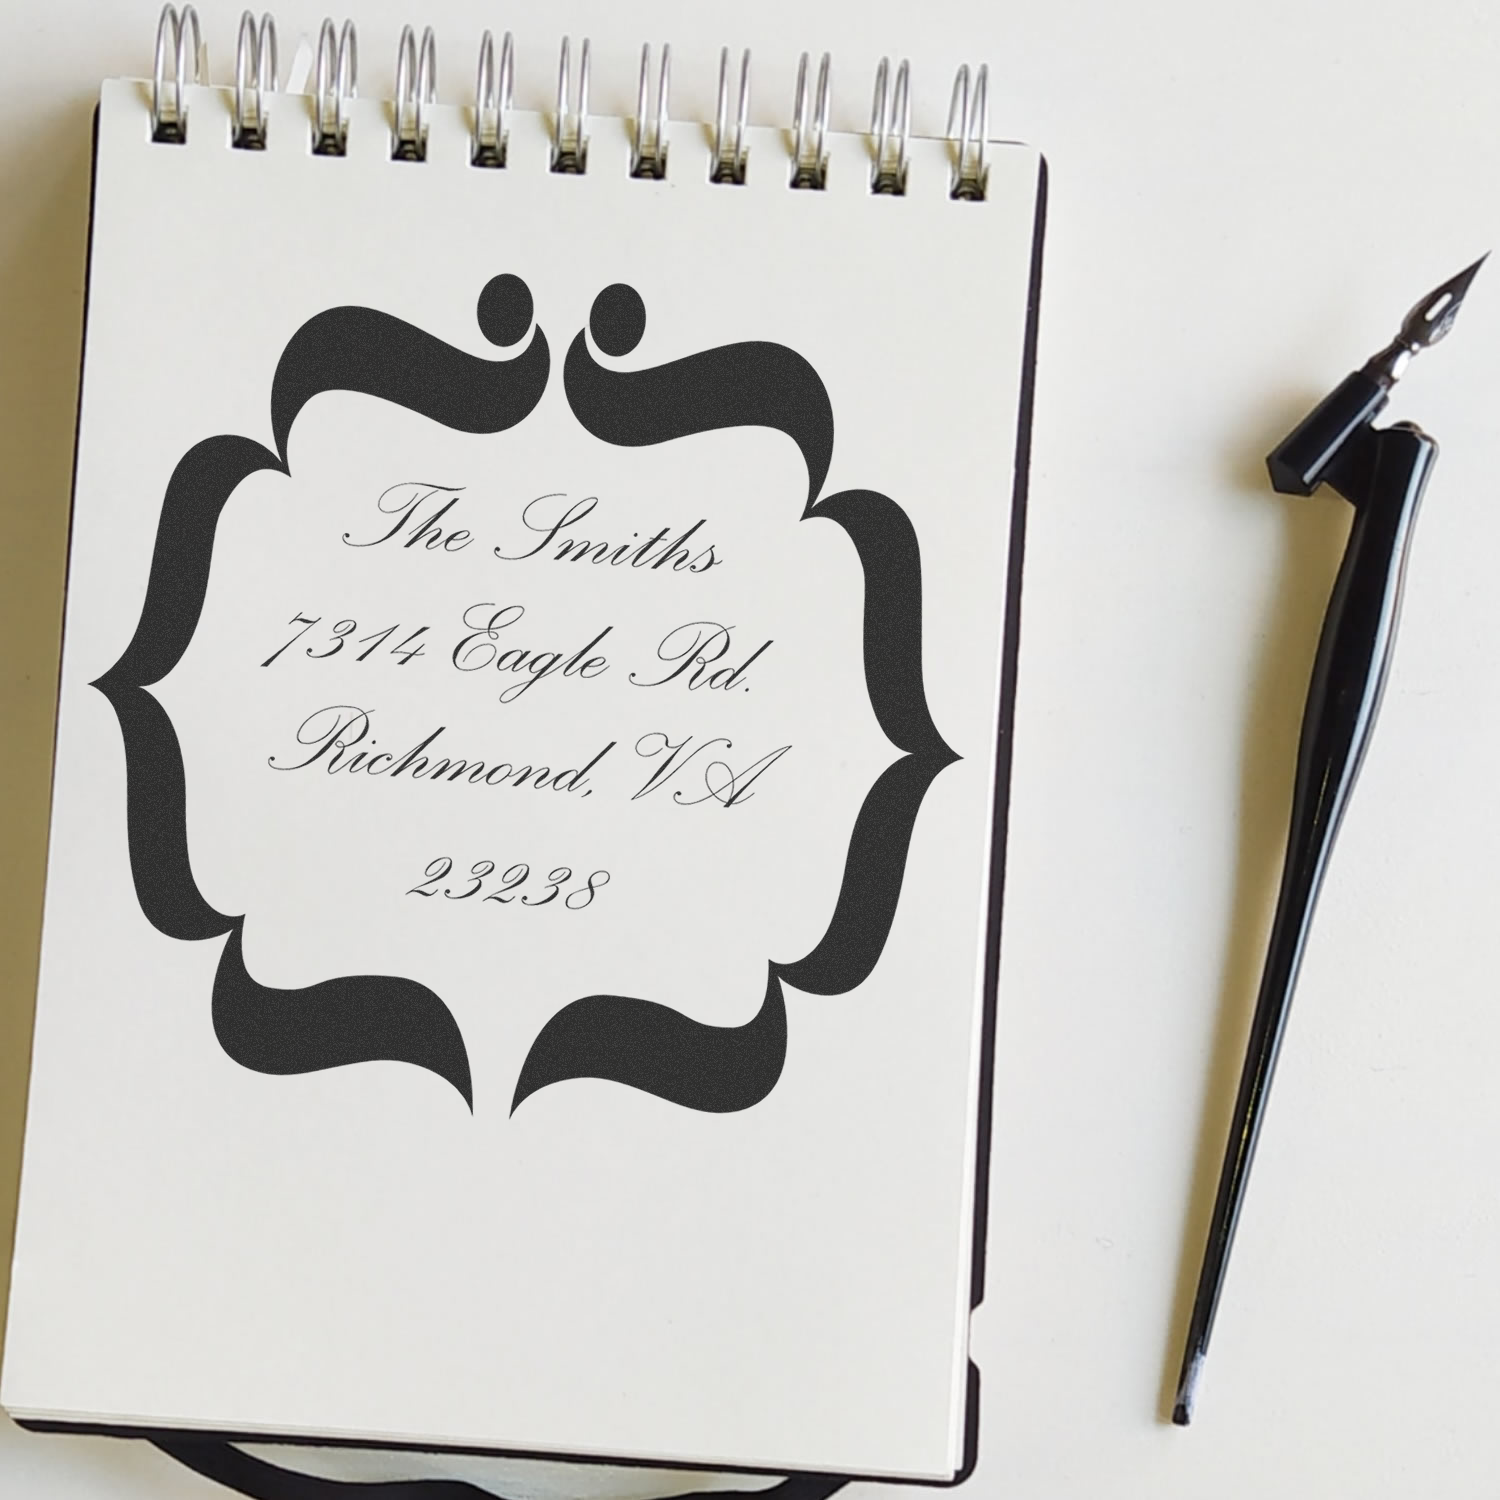 The Smiths
7314 Eagle Rd.
Richmond, VA
23238